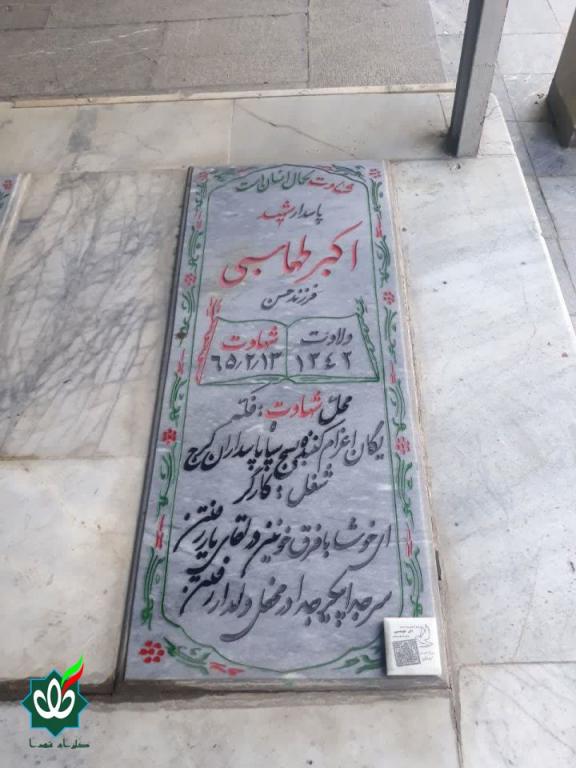 شهادت کمال انسان است
پاسدار شهید
اکبر طهماسبی
فرزند حسن
ولادت
۱۳۴۲
شهادت
۶۵/۲/۱۳
محل شهادت: فکه
یگان اعزام کننده بسیج سپاه پاسداران کرج
شغل: کارگر
ای خوشا با فرق خونین در لقای یار رفتن
سر جدا پیکر جدا در محفل دلدار رفتن
گلزار شهدا